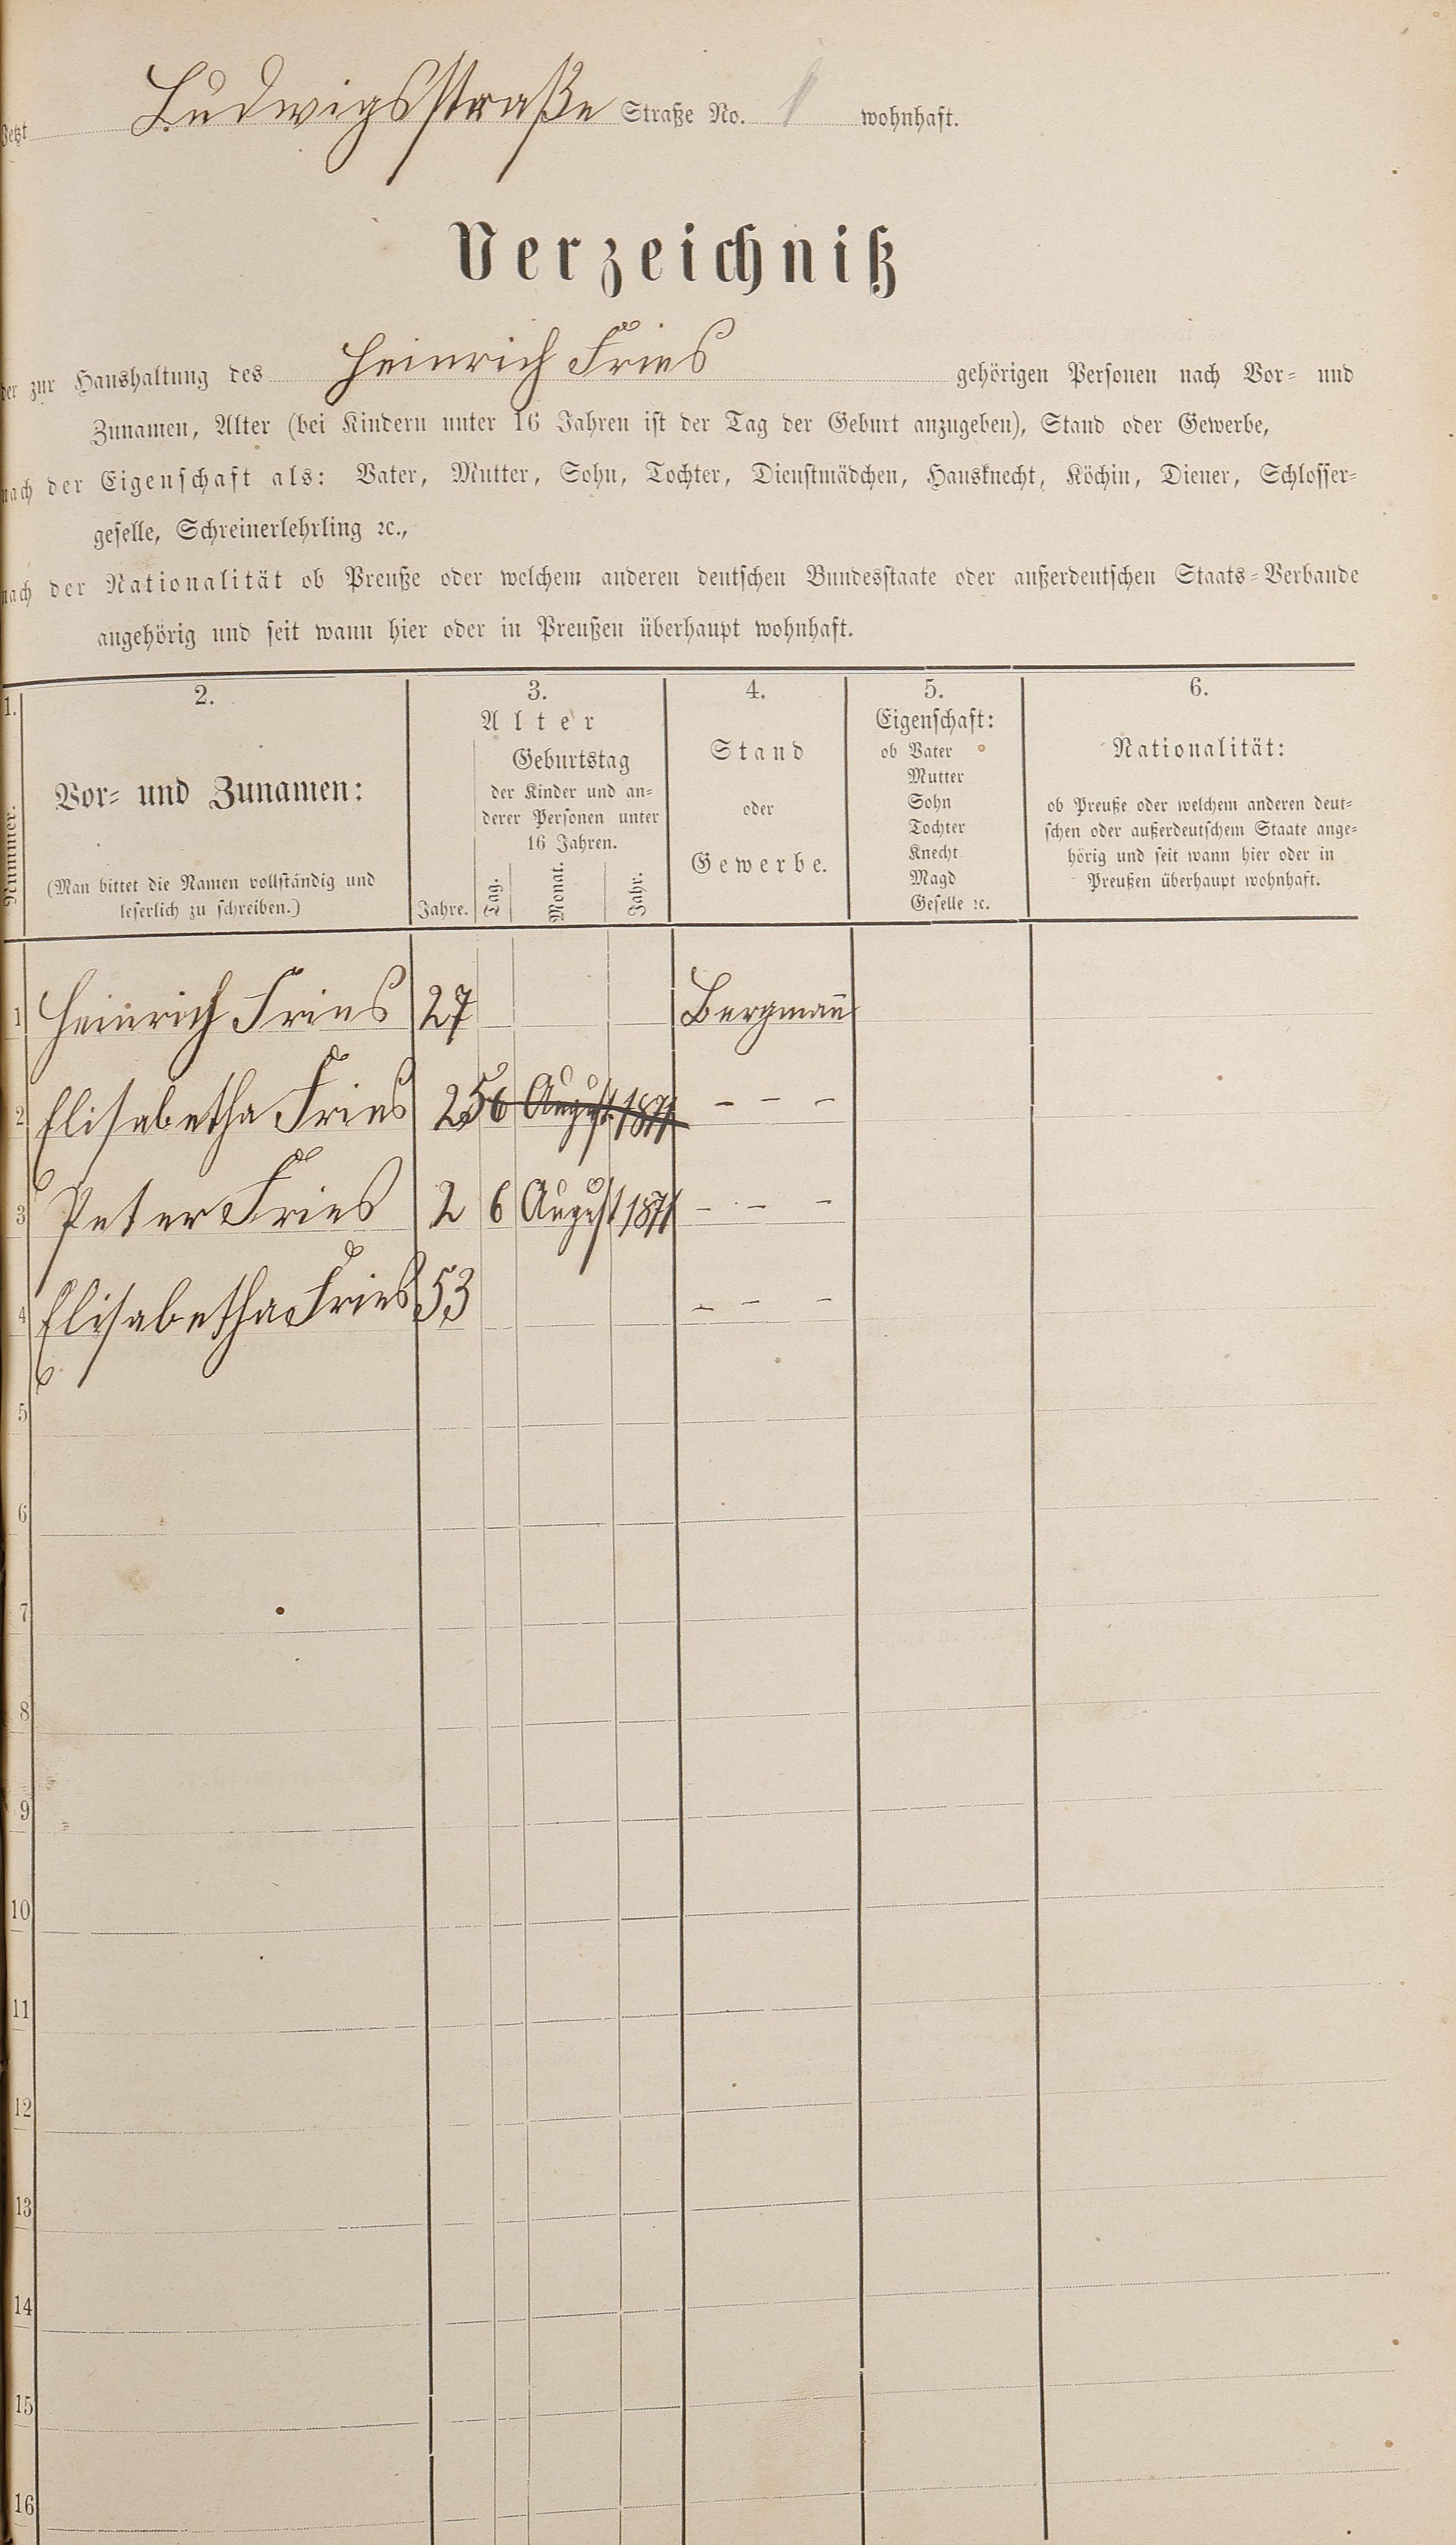 Jetzt Ludwigsstraße Straße No. wohnhaft.
Verzeichniß
der zur Haushaltung des Heinrich Fries gehörigen Personen nach Vor= und
Zunamen, Alter (bei Kindern unter 16 Jahren ist der Tag der Geburt anzugeben), Stand oder Gewerbe,
nach der Eigenschaft als: Vater, Mutter, Sohn, Tochter, Dienstmädchen, Hausknecht, Köchin, Diener, Schlosser=
geselle, Schreinerlehrling ꝛc.,
nach der Nationalität ob Preuße oder welchem anderen deutschen Bundesstaate oder außerdeutschen Staats=Verbande
angehörig und seit wann hier oder in Preußen überhaupt wohnhaft.
1. 2. 3. 4. 5. 6.
Nummer.
Vor= und Zunamen:
(Man bittet die Namen vollständig und
leserlich zu schreiben.)
Alter
Jahre.
Geburtstag
der Kinder und an=
derer Personen unter
16 Jahren.
Tag. Monat. Jahr.
Stand
oder
Gewerbe.
Eigenschaft:
ob Vater
Mutter
Sohn
Tochter
Knecht
Magd
Geselle ꝛc.
Nationalität:
ob Preuße oder welchem anderen deut=
schen oder außerdeutschem Staate ange=
hörig und seit wann hier oder in
Preußen überhaupt wohnhaft.
1 Heinrich Fries 27 Bergmañ
2 Elisabetha Fries 25 6 August 1871 – – –
3 Peter Fries 2 6 August 1871 – – –
4 Elisabetha Fries 53 – – –
5
6
7
8
9
10
11
12
13
14
15
16